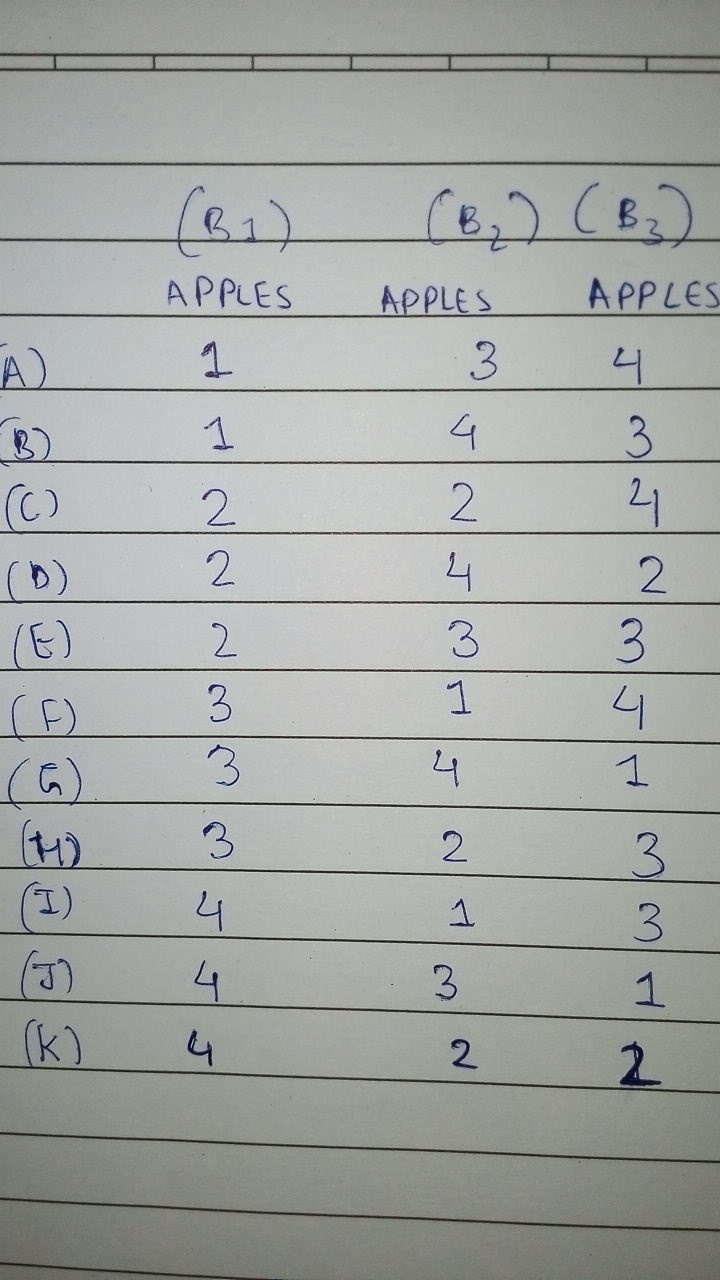 (B1) (B2) (B3)
APPLES APPLES APPLES
(A) 1 3 4
(B) 1 4 3
(C) 2 2 4
(D) 2 4 2
(E) 2 3 3
(F) 3 1 4
(G) 3 4 1
(H) 3 2 3
(I) 4 1 3
(J) 4 3 1
(K) 4 2 2